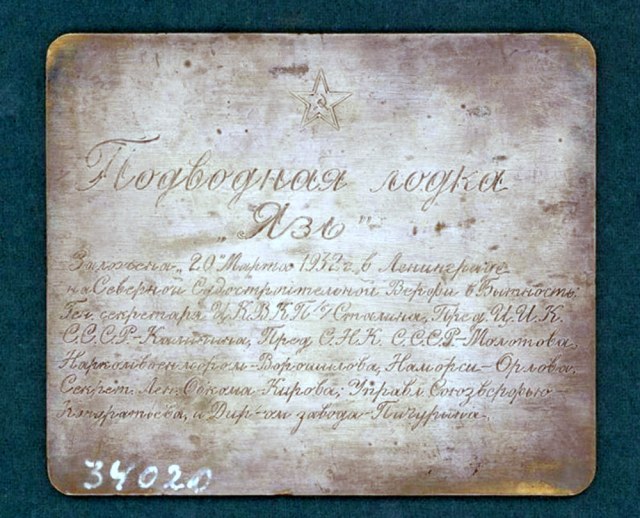 Подводная лодка
„Язь"
Заложена „20" Марта 1932 г. в Ленинграде
на Северной Судостроительной Верфи в Бытность:
Ген. секретаря Ц.К.В.К.П. Сталина, Пред. Ц.И.К.
С.С.С.Р-Калинина, Пред. С.Н.К. С.С.С.Р-Молотова,
Ворошилова, Наморси-Орлова,
Секрет. Лен. Обкома-Кирова, Управл. Союзверфью-
и Дир-ом завода-Пичурина.
34020